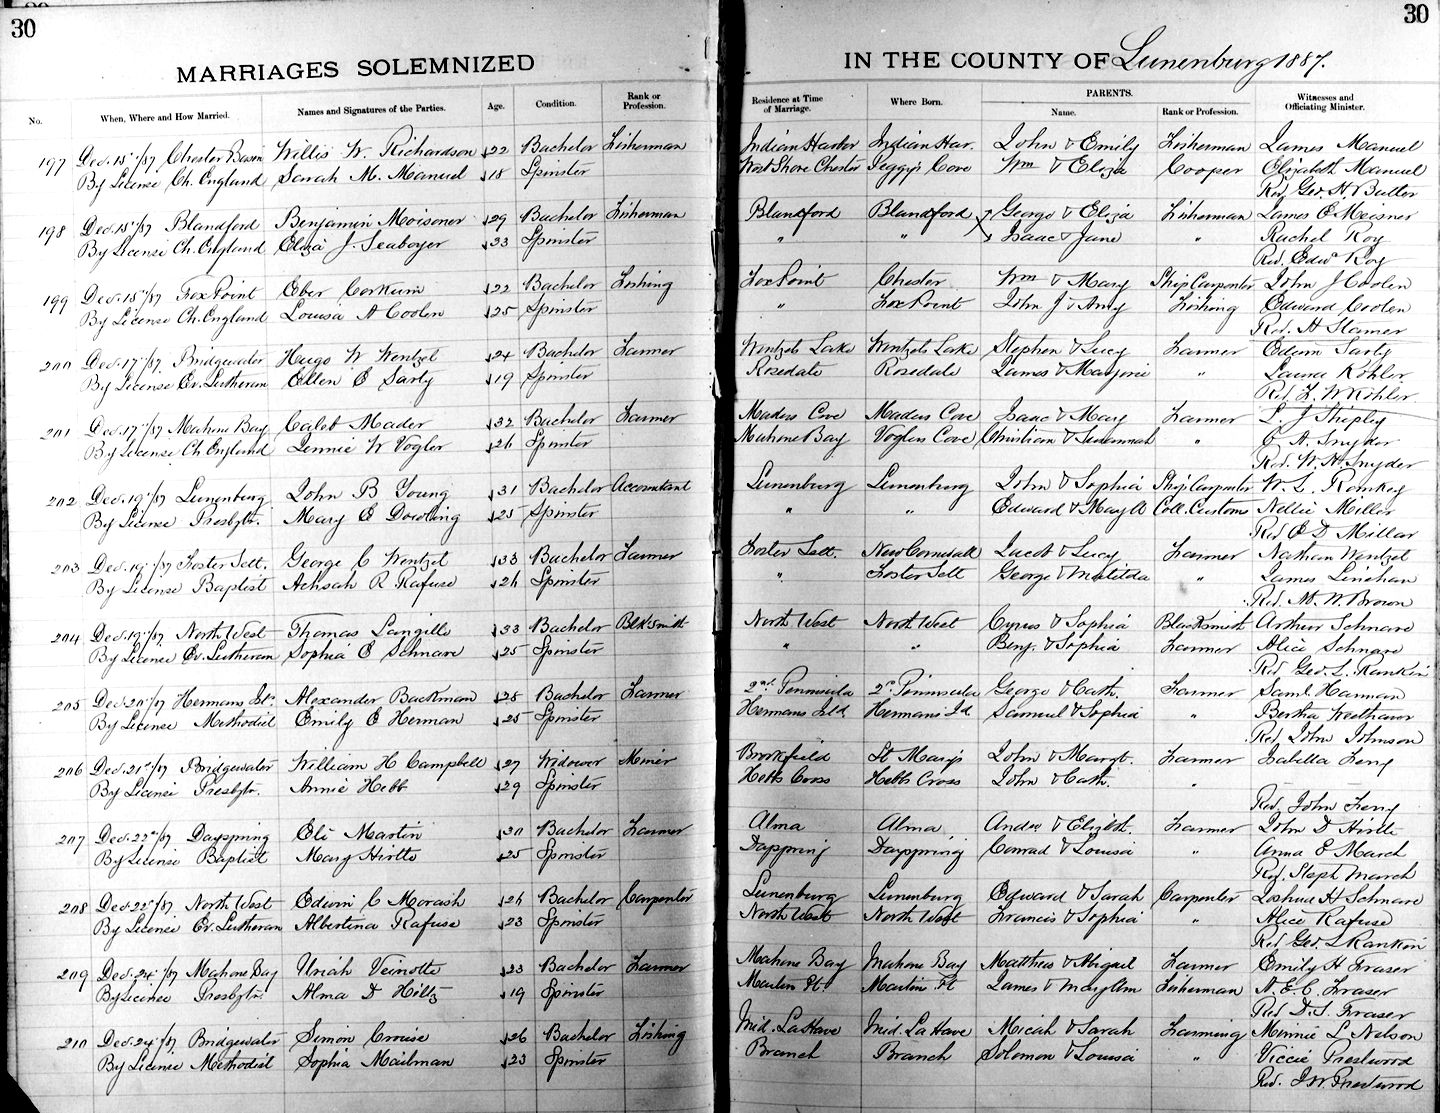 30
MARRIAGES SOLEMNIZED
No. When, Where and How Married. Names and Signatures of the Parties. Age. Condition. Rank or Profession.
197 Dec. 15"/87 Chester Basin Willis W. Richardson 22 Bachelor Fisherman
By License Ch. England Sarah M. Manuel 18 Spinster
198 Dec. 15"/87 Blandford Benjamin Moisener 29 Bachelor Fisherman
By License Ch. England Eliza J. Seaboyer 23 Spinster
199 Dec. 15"/87 Fox Point Eber Corkum 22 Bachelor Fishing
By License Ch. England Louisa A Coolen 25 Spinster
200 Dec. 17"/87 Bridgewater Hugo W Wentzel 24 Bachelor Farmer
By License Ev. Lutheran Ellen E Sarty 19 Spinster
201 Dec. 17"/87 Mahone Bay Caleb Mader 32 Bachelor Farmer
By License Ch. England Jennie W Vogler 26 Spinster
202 Dec. 19"/87 Lunenburg John B Young 31 Bachelor Accountant
By License Presbytr. Mary E Dowling 25 Spinster
203 Dec. 19"/87 Foster Sett. George C Wentzel 33 Bachelor Farmer
By License Baptist Achsah R Rafuse 26 Spinster
204 Dec. 19"/87 North West Thomas Langille 33 Bachelor Blksmith
By License Ev. Lutheran Sophia E Schnare 25 Spinster
205 Dec. 20"/87 Hermans Isd. Alexander Backman 28 Bachelor Farmer
By License Methodist Emily E Herman 25 Spinster
206 Dec. 21st/87 Bridgewater William H Campbell 27 Widower Miner
By License Presbytr. Annie Hebb 29 Spinster
207 Dec. 22"/87 Dayspring Eli Martin 30 Bachelor Farmer
By License Baptist Mary Hirtle 25 Spinster
208 Dec. 22"/87 North West Edwin C Morash 26 Bachelor Carpenter
By License Ev. Lutheran Albertina Rafuse 23 Spinster
209 Dec. 24"/87 Mahone Bay Uriah Veinotte 23 Bachelor Farmer
By License Presbytr. Alma D Hiltz 19 Spinster
210 Dec. 24"/87 Bridgewater Simon Crouse 26 Bachelor Fishing
By License Methodist Sophia Mailman 23 Spinster
30
IN THE COUNTY OF Lunenburg 1887.
Residence at Time of Marriage. Where Born. PARENTS. Name. Rank or Profession. Witnesses and Officiating Minister.
Indian Harbor Indian Har. John & Emily Fisherman James Manuel
West Shore Chester Peggy's Cove Wm & Eliza Cooper Elizabeth Manuel
Rev. Geo. H Butler
Blandford Blandford George & Eliza Fisherman James E Meisner
" " Isaac & Jane " Rachel Roy
Rev. Edwd Roy
Fox Point Chester Wm & Mary Ship Carpenter John J Coolen
" Fox Point John J & Amy Fishing Edward Coolen
Rev. H Stamer
Wentzels Lake Wentzels Lake Stephen & Lucy Farmer Edwin Sarty
Rosedale Rosedale James & Marjorie " Laura Kohler
Rev. F. W Kohler
Maders Cove Maders Cove Isaac & Mary Farmer L J Shipley
Mahone Bay Voglers Cove Christian & Susannah " C A. Snyder
Rev. W. H. Snyder
Lunenburg Lunenburg John & Sophia Ship Carpenter W. L. Romkey
" " Edward & Mary A Coll. Customs Nellie Millar
Rev. E D Millar
Foster Sett. New Cornwall Jacob & Lucy Farmer Nathan Wentzel
" Foster Sett George & Matilda " James Linehan
Rev. M. W. Brown
North West North West Cyrus & Sophia Blacksmith Arthur Schnare
" " Benj. & Sophia Farmer Alice Schnare
Rev. Geo. L. Rankin
2nd Peninsula 2d Peninsula George & Cath. Farmer Saml. Herman
Hermans Isld. Hermans Id. Samuel & Sophia " Bertha Westhaver
Rev. John Johnson
Brookfield St Marys John & Margt. Farmer Isabella Feny
Hebbs Cross Hebbs Cross John & Cath. "
Rev. John Feny
Alma Alma Andw & Elizbth. Farmer John D Hirtle
Dayspring Dayspring Conrad & Louisa " Anna E March
Rev. Steph March
Lunenburg Lunenburg Edward & Sarah Carpenter Joshua H Schnare
North West North West Francis & Sophia " Alice Rafuse
Rev. Geo. L Rankin
Mahone Bay Mahone Bay Matthew & Abigail Farmer Emily H Fraser
Martins Pt Martins Pt James & Mary Ann Fisherman A. E. C. Fraser
Rev. D. S. Fraser
Mid. LaHave Mid. La Have Micah & Sarah Farming Minnie L Nelson
Branch Branch Solomon & Louisa " Viccie Prestwood
Rev. J W Prestwood